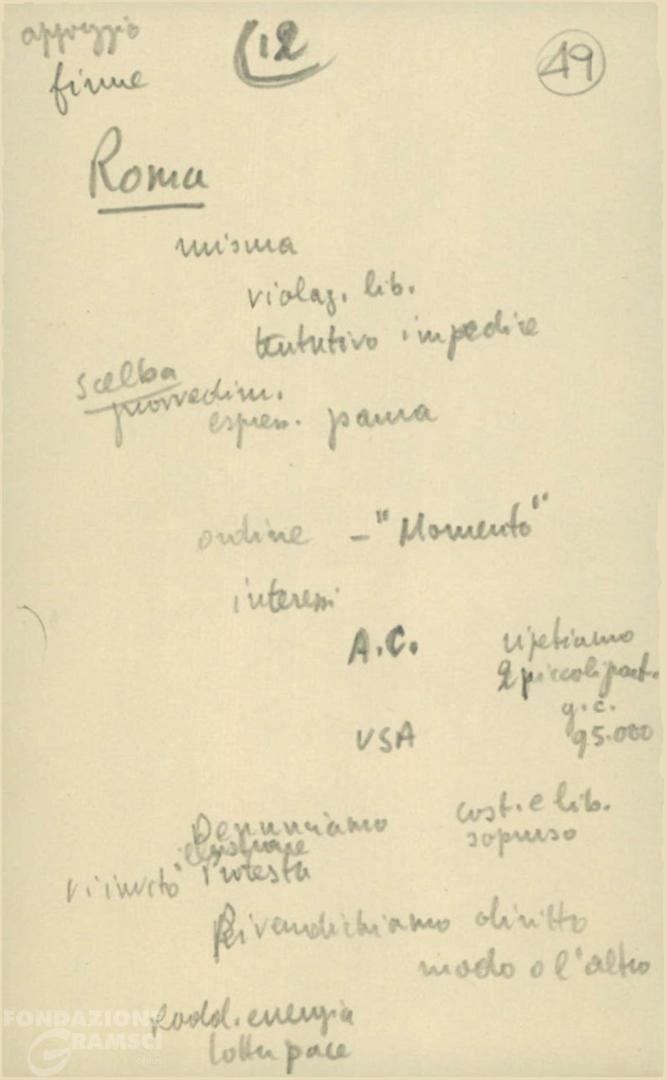 appoggio
firme
12
49
Roma
misura
violaz. lib.
tentativo impedire
Scelba
provvedim.
espress. paura
ordine - "Momento"
interessi
A.C.
ripetiamo
2 piccoli part.
g.c.
USA
95.000
Denunciamo
cost. e lib.
sopruso
Vi invito
Protesta
Rivendichiamo diritto
modo o l'altro
Radd. energia
lotta pace
FONDAZIONE
GRAMSCI